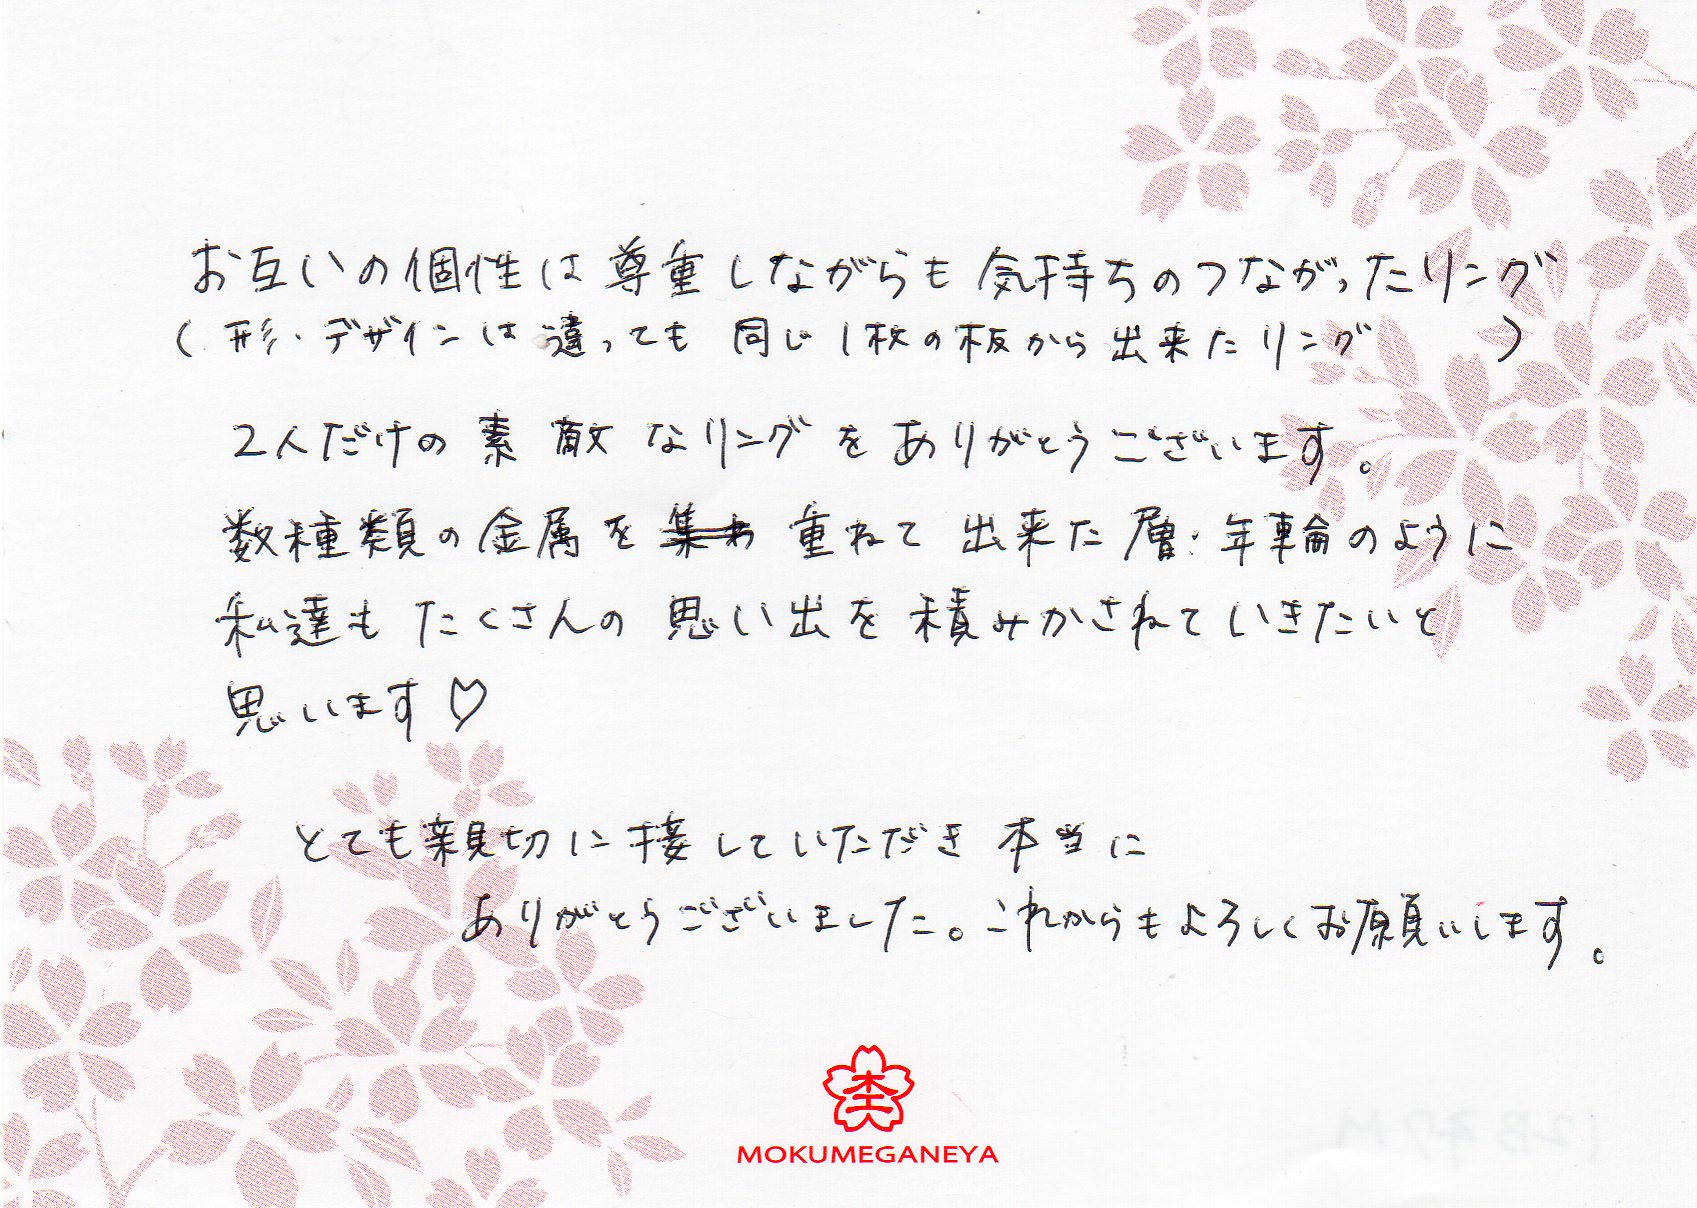 お互いの個性は尊重しながらも気持ちのつながったリング
（形・デザインは違っても同じ1枚の板から出来たリング　　）
2人だけの素敵なリングをありがとうございます。
数種類の金属を集め重ねて出来た層・年輪のように
私達もたくさんの思い出を積みかさねていきたいと
思います♡
とても親切に接していただき本当に
ありがとうございました。これからもよろしくお願いします。
杢
MOKUMEGANEYA